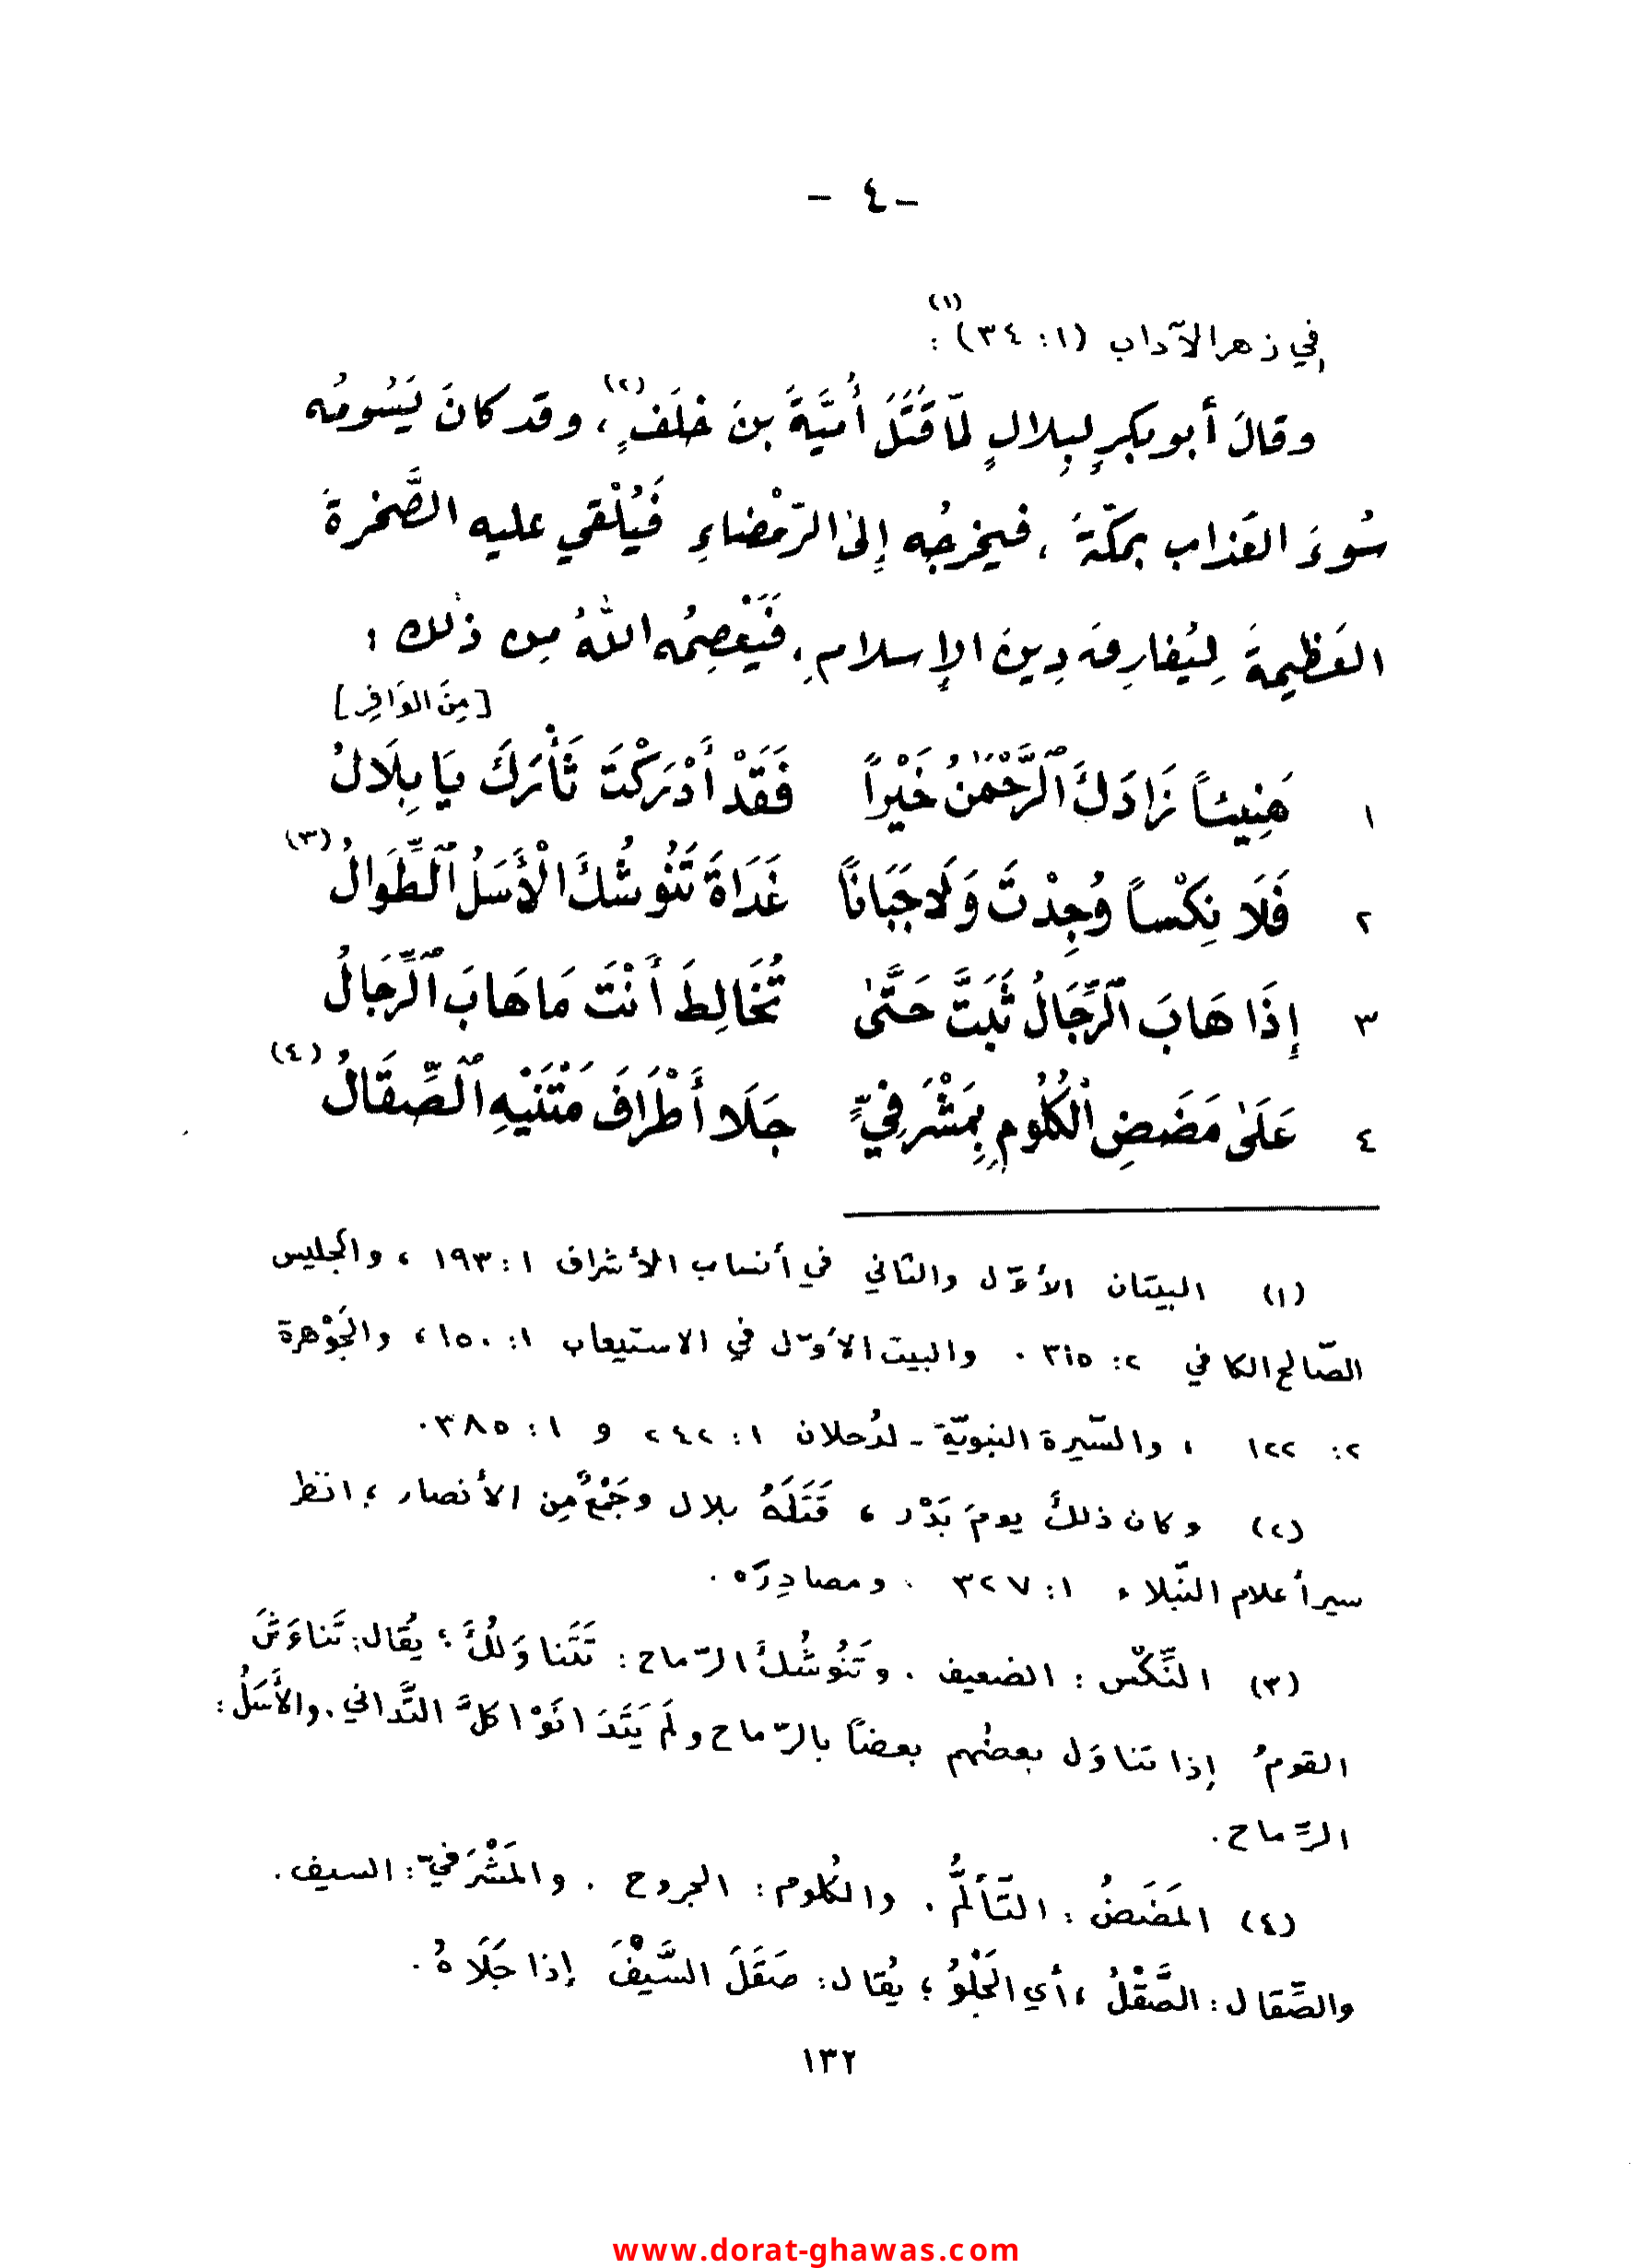 - ٤ -
في زهر الآداب (١: ٣٤)(١):
وقالَ أبو بكرٍ لِبِلالٍ لمّا قَتَلَ أُمَيَّةَ بنَ خلَفٍ(٢)، وقد كانَ يَسُومُه
سُوءَ العَذاب بمكّةَ، فيخرجُه إِلى الرّمْضاءِ فَيُلْقي عليه الصَّخرةَ
العَظيمةَ لِيُفارِقَ دِينَ الإِسلامِ، فَيَعْصِمُه اللهُ مِن ذٰلك:
[مِنَ الوَافِرِ]
١ هَنِيئاً زَادَكَ ٱلرَّحْمٰنُ خَيْراً فَقَدْ أَدْرَكْتَ ثَأْرَكَ يَا بِلَالُ
٢ فَلَا نِكْساً وُجِدْتَ وَلَا جَبَاناً غَدَاةَ تَنُوشُكَ الْأَسَلُ ٱلطِّوَالُ(٣)
٣ إِذَا هَابَ ٱلرِّجَالُ ثَبَتَّ حَتَّىٰ تُخَالِطَ أَنْتَ مَا هَابَ ٱلرِّجَالُ
٤ عَلَىٰ مَضَضِ ٱلْكُلُومِ بِمَشْرَفِيٍّ جَلَا أَطْرَافَ مَتْنَيْهِ ٱلصِّقَالُ(٤)
(١) البيتان الأوّل والثاني في أنساب الأشراف ١: ١٩٣، والجليس
الصّالح الكافي ٢: ٣١٥. والبيت الأوّل في الاستيعاب ١: ١٥٠، والجَوْهرة
٢: ١٢٢، والسّيرة النبويّة - لدُحلان ١: ٢٤٢ و ١: ٣٨٥.
(٢) وكان ذلك يومَ بَدْر، قَتَلَهُ بلال وجَمْعٌ مِن الأنصار؛ انظر
سير أعلام النّبلاء ١: ٣٢٧. ومصادِرَه.
(٣) النِّكْس: الضعيف. وتَنُوشُكَ الرّماح: تَتَناوَلُكَ؛ يُقال: تَناوَشَ
القومُ إذا تناوَل بعضُهم بعضاً بالرّماح ولَم يَتَدَانَوْا كلَّ التَّداني. والأَسَلُ:
الرِّماح.
(٤) المَضَضُ: التّألُّم. والكُلوم: الجروح. والمَشْرَفيّ: السيف.
والصِّقال: الصَّقْلُ، أي الجَلْوُ؛ يُقال: صَقَلَ السَّيْفَ إذا جَلَاهُ.
١٣٢
www.dorat-ghawas.com